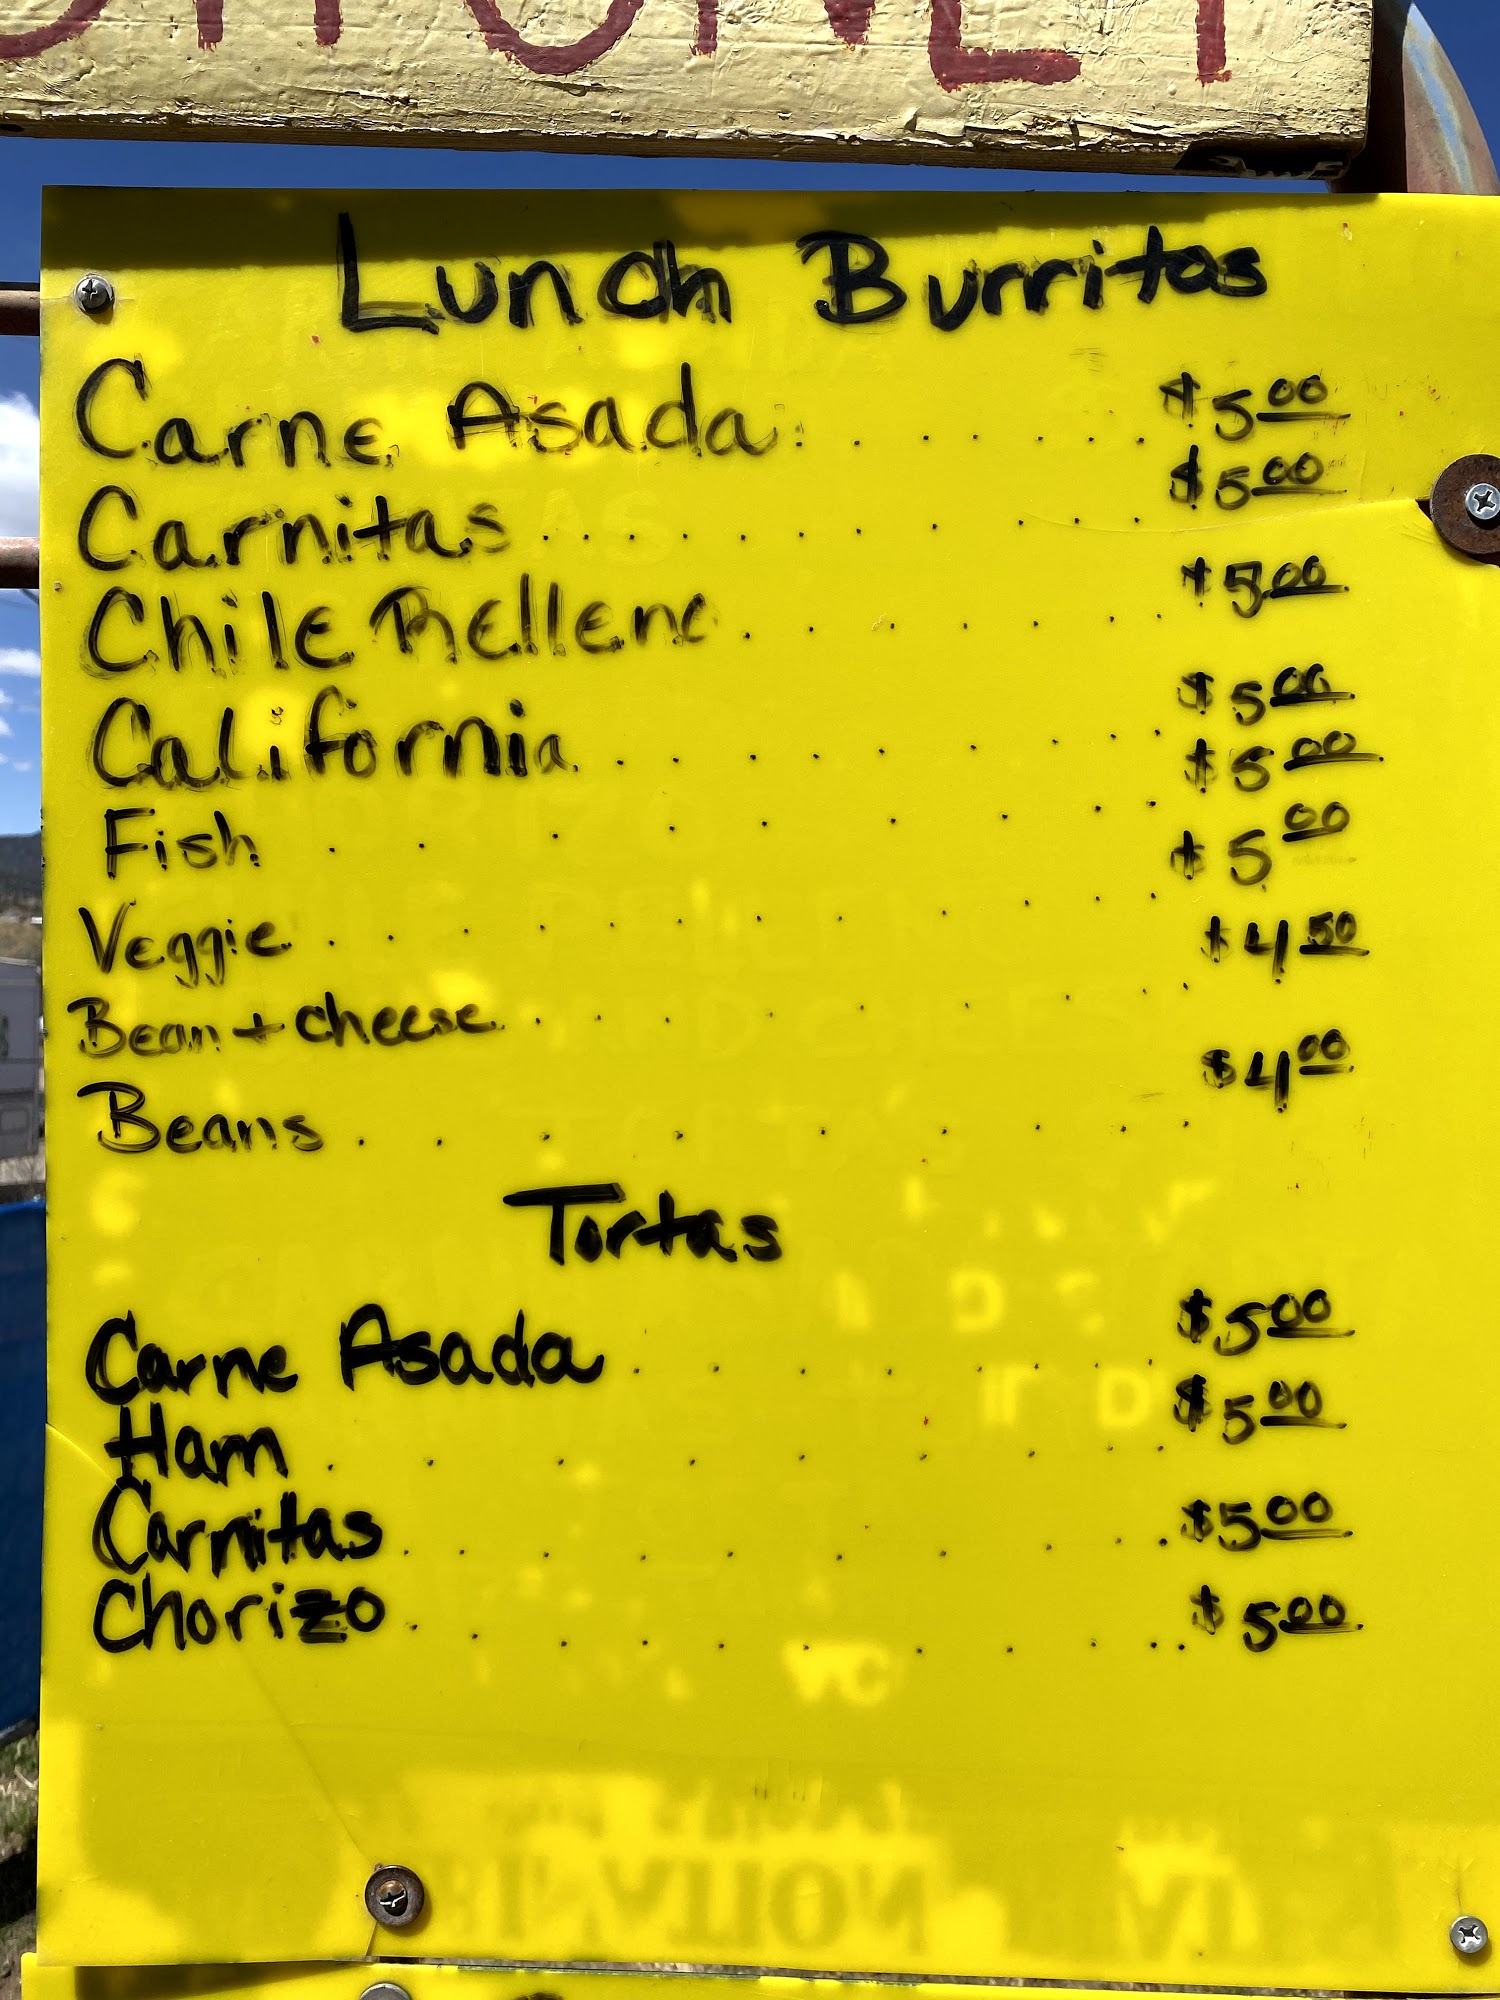 ONLY
Lunch Burritos
Carne Asada $5.00
Carnitas $5.00
Chile Relleno $5.00
California $5.00
Fish $5.00
Veggie $5.00
Bean + cheese $4.50
Beans $4.00
Tortas
Carne Asada $5.00
Ham $5.00
Carnitas $5.00
Chorizo $5.00